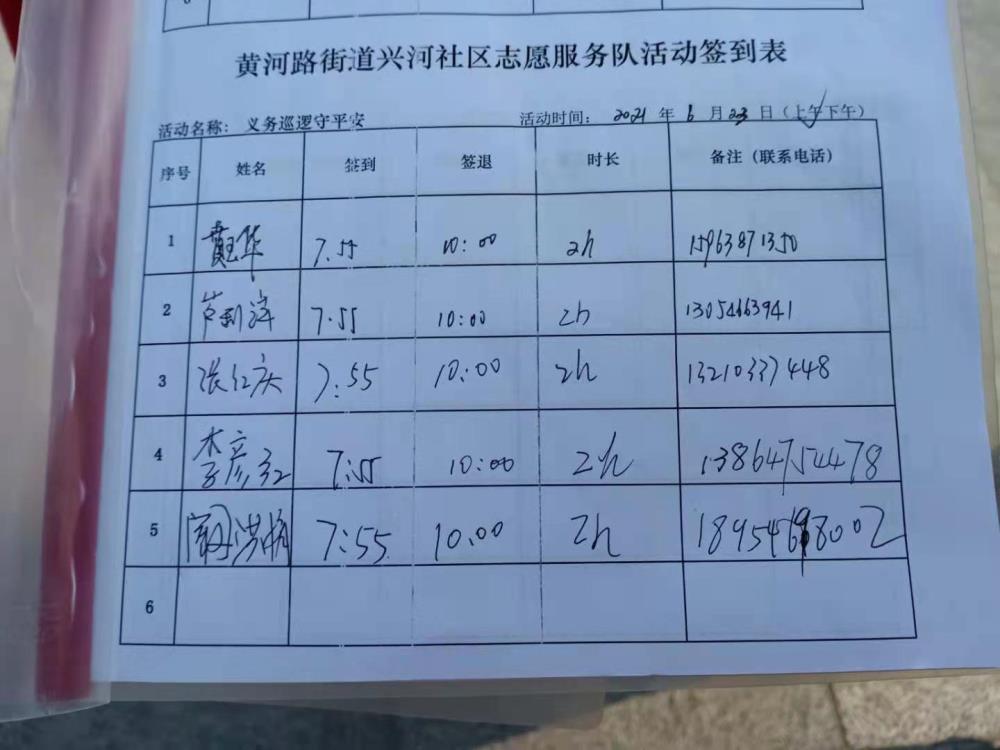 黄河路街道兴河社区志愿服务队活动签到表
活动名称： 义务巡逻守平安 活动时间： 2021 年 6 月 23 日（上午下午）
序号 姓名 签到 签退 时长 备注（联系电话）
1 华 7.55 10:00 2h 15963871350
2 7.55 10:00 2h 13054663941
3 张仁庆 7:55 10:00 2h 13210337448
4 李彦红 7:55 10:00 2h 13864754478
5 7:55 10.00 2h
6